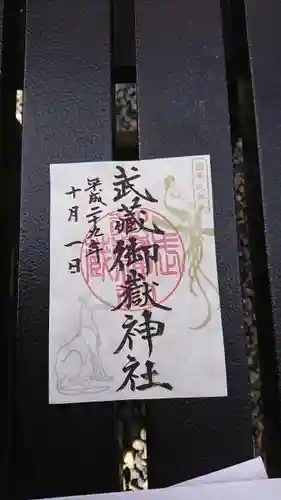 武蔵御嶽神社
平成二十九年
十月一日